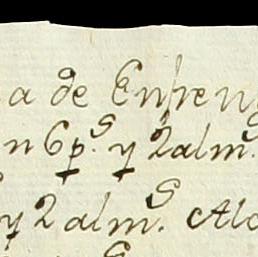 a de Enfren
n 6 p.s y 2 alm.s
y 2 alm.s Alc